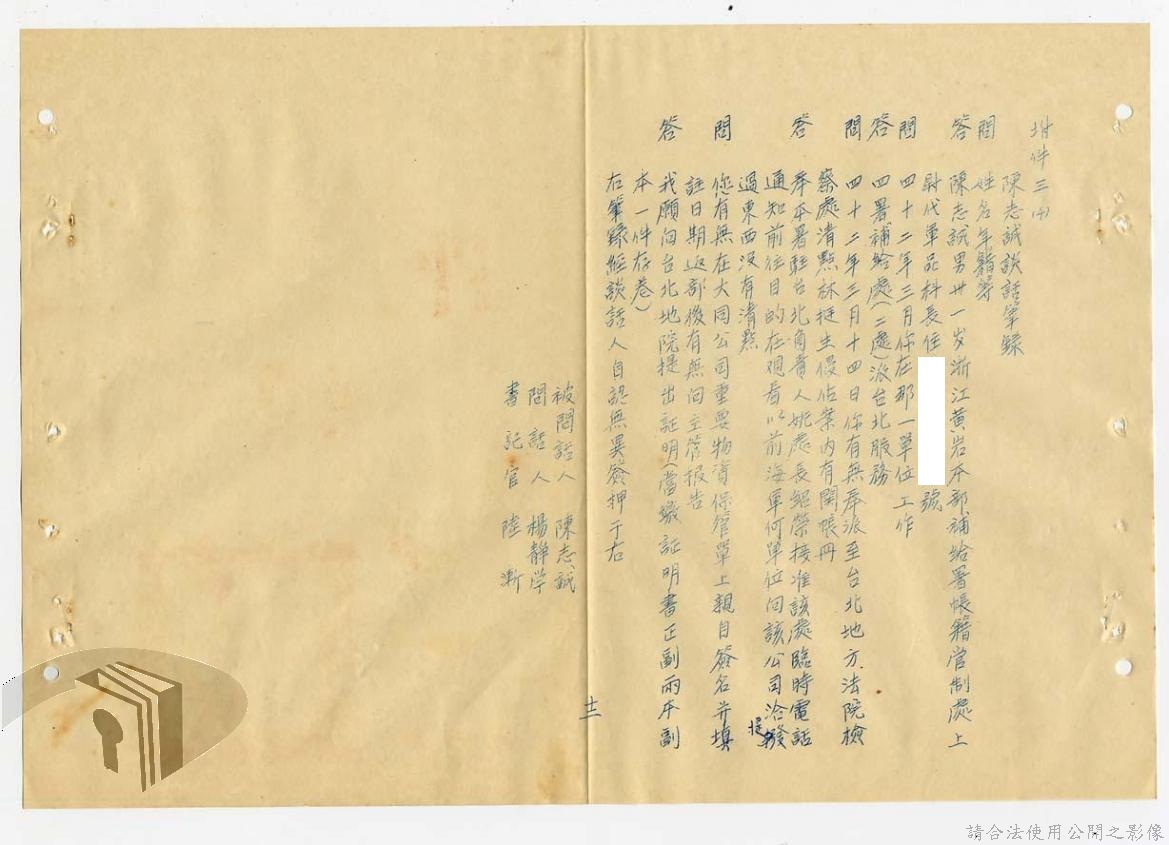 附件三(4)
陳志誠談話筆錄
問 姓名年籍等
答 陳志誠男卅一岁浙江黃岩本部補給署帳籍管制處上
尉代單品科長住 號
問 四十二年三月你在那一單位工作
答 四署補給處(二處)派台北服務
問 四十二年三月十四日你有無奉派至台北地方法院檢
察處清點林挺生侵佔案內有関帳冊
答 奉本署駐台北負責人姚處長紹榮接准該處臨時電話
通知前往目的在观看以前海軍何單位向該公司洽撥
提過東西没有清點
問 您有無在大同公司重要物資保管單上親自簽名并填
註日期返部後有無向主管报告
答 我願向台北地院提出証明(當繳証明書正副兩本副
本一件存卷)
右筆錄經談話人自認無異簽押于右
被問話人 陳志誠
問話人 楊靜学
書記官 陸漸
十二
請合法使用公開之影像